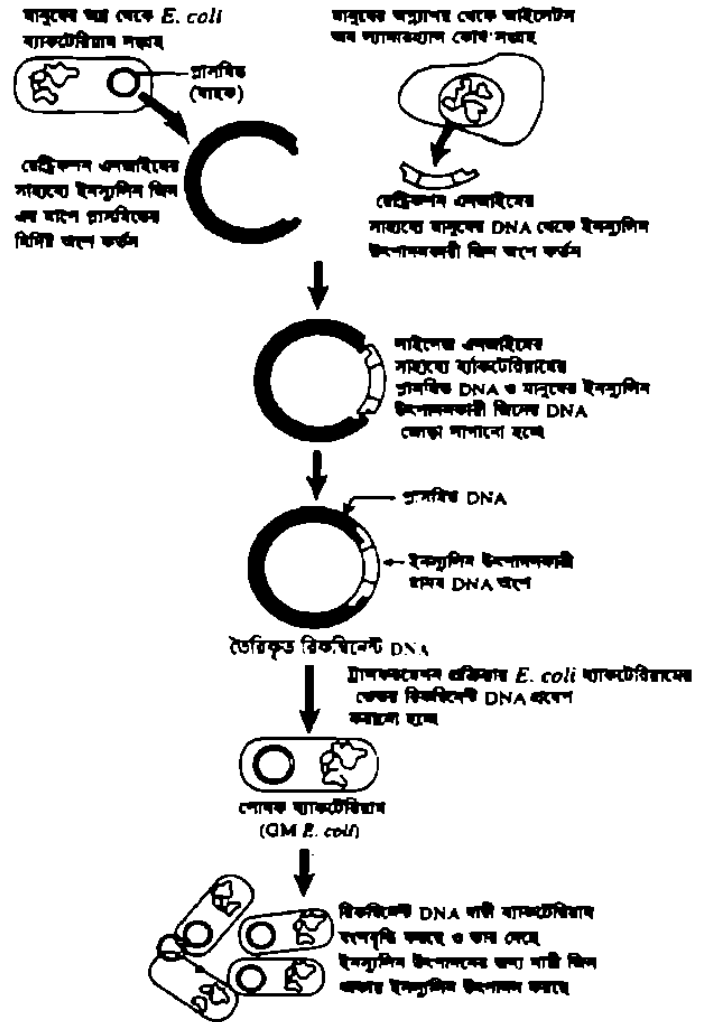 মানুষের অন্ত্র থেকে E. coli
ব্যাকটেরিয়াম সংগ্রহ
মানুষের অগ্ন্যাশয় থেকে আইলেটস
অব ল্যাঙ্গারহ্যান্স কোষ সংগ্রহ
প্লাসমিড
(বাহক)
রেস্ট্রিকশন এনজাইমের
সাহায্যে ইনস্যুলিন জিন
এর মাপে প্লাসমিডের
নির্দিষ্ট অংশ কর্তন
রেস্ট্রিকশন এনজাইমের
সাহায্যে মানুষের DNA থেকে ইনস্যুলিন
উৎপাদনকারী জিন অংশ কর্তন
লাইগেজ এনজাইমের
সাহায্যে ব্যাকটেরিয়ামের
প্লাসমিড DNA ও মানুষের ইনস্যুলিন
উৎপাদনকারী জিনের DNA
জোড়া লাগানো হচ্ছে
প্লাসমিড DNA
ইনস্যুলিন উৎপাদনকারী
মানব DNA অংশ
তৈরিকৃত রিকম্বিনেন্ট DNA
ট্রান্সফরমেশন প্রক্রিয়ায় E. coli ব্যাকটেরিয়ামের
ভেতর রিকম্বিনেন্ট DNA প্রবেশ
করানো হচ্ছে
পোষক ব্যাকটেরিয়াম
(GM E. coli)
রিকম্বিনেন্ট DNA বাহী ব্যাকটেরিয়াম
বংশবৃদ্ধি করছে ও তার দেহে
ইনস্যুলিন উৎপাদনের জন্য দায়ী জিন
প্রকার ইনস্যুলিন উৎপাদন করছে